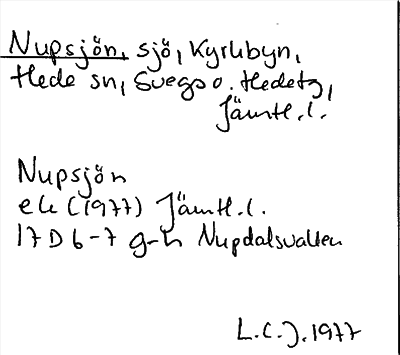 Nupsjön, sjö, Kyrkbyn,
Hede sn, Svegs o. Hedetg,
Jämtl.l.
Nupsjön
ek (1977) Jämtl.l.
17D 6-7 g-h Nupdalsvallen
L.C.J. 1977